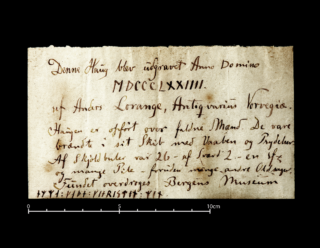 Denne Haug blev udgravet Anno Domino
MDCCCLXXIIII.
af Anders Lorange, Antiqvarius Norvegiæ.
Haugen er opført over faldne Mænd De vare
brændt i sit Skib med Vaaben og Prydelser
Af Skjoldbuler var 26 - af Sværd 2 - en
og mange Pile - foruden mange andre Oldsager.
Fundet overdroges Bergens Museum
0 5 10cm